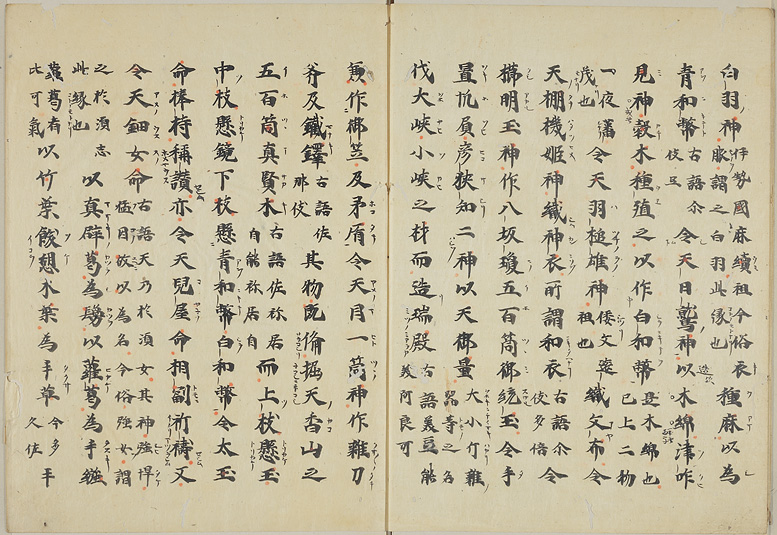 白羽神伊勢國麻續祖今俗衣服謂之白羽此縁也種麻以為
青和幣古語尒伎弖令天日鷲神以木綿津咋
見神穀木種殖之以作白和幣是木綿也已上二物
一夜蕃茂也令天羽槌雄神倭文遠祖也織文布令
天棚機姫神織神衣所謂和衣古語尒伎多倍令
櫛明玉神作八坂瓊五百箇御統玉令手
置帆負彦狹知二神以天御量大小斤雜器等之名
伐大峽小峽之材而造瑞殿古語美豆能美阿良可
兼作御笠及矛盾令天目一箇神作雜刀
斧及鐵鐸古語佐那伎其物既俻掘天香山之
五百箇真賢木古語佐祢居自能祢居自而上枝懸玉
中枝懸鏡下枝懸青和幣白和幣令太玉
命捧持稱讃亦令天兒屋命相副祈禱又
令天鈿女命古語天乃於湏女其神強悍猛固故以為名今俗強女謂
之於湏志此縁也以真辟葛為鬘以蘿葛為手繦
蘿葛者比可氣以竹葉飫憩木葉為手草今多久佐手